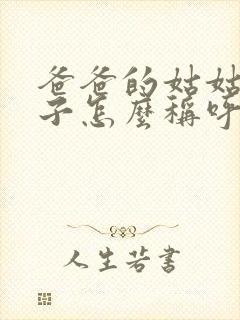 爸爸的姑姑
子怎麼稱呼
人生若書